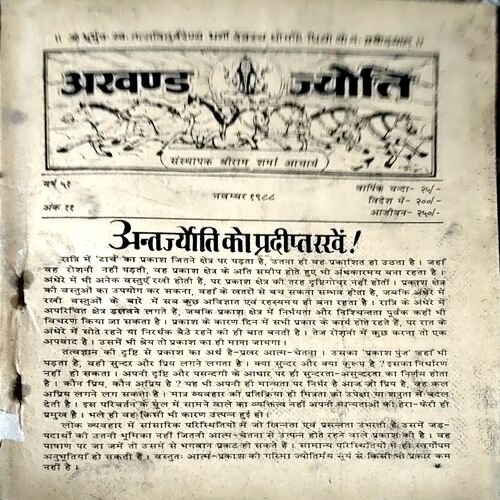 ॥ ॐ भूर्भुवः स्वः तत्सवितुर्वरेण्यं भर्गो देवस्य धीमहि धियो यो नः प्रचोदयात् ॥
अखण्ड ज्योति
संस्थापक श्रीराम शर्मा आचार्य
वर्ष ५१
अंक ११
नवम्बर १९८८
वार्षिक चन्दा- २५/-
विदेश में- २००/-
आजीवन- २५०/-
अन्तर्ज्योति को प्रदीप्त रखें!
रात्रि में 'टार्च' का प्रकाश जितने क्षेत्र पर पड़ता है, उतना ही वह प्रकाशित हो उठता है। जहाँ
वह रोशनी नहीं पड़ती, वह प्रकाश क्षेत्र के अति समीप होते हुए भी अंधकारमय बना रहता है।
अंधेरे में भी अनेक वस्तुएँ रखी होती हैं, पर प्रकाश क्षेत्र की तरह दृष्टिगोचर नहीं होतीं। प्रकाश क्षेत्र
की वस्तुओं का उपयोग कर सकना, वहाँ के खतरों से बच सकना सम्भव होता है, जबकि अंधेरे में
रखी वस्तुओं के बारे में सब कुछ अविज्ञात एवं रहस्यमय ही बना रहता है। रात्रि के अंधेरे में
अपरिचित क्षेत्र डरावने लगते हैं, जबकि प्रकाश क्षेत्र में निर्भयता और निश्चिन्तता पूर्वक कहीं भी
विचरण किया जा सकता है। प्रकाश के कारण दिन में सभी प्रकार के कार्य होते रहते हैं, पर रात के
अंधेरे में सोते रहने या निरर्थक बैठे रहने की ही बात बनती है। तेज रोशनी में कुछ करना तो एक
अपवाद है। उसमें भी श्रेय तो प्रकाश का ही माना जाता है।
तत्वज्ञान की दृष्टि से प्रकाश का अर्थ है-प्रखर आत्म-चेतना। उसका 'प्रकाश पुंज' जहाँ भी
पड़ता है, वही सुन्दर और प्रिय लगने लगता है। क्या सुन्दर और क्या कुरूप है? इसका निर्धारण
नहीं हो सकता। अपनी दृष्टि और पसन्दगी के आधार पर ही सुन्दरता-असुन्दरता का निर्णय होता
है। कौन प्रिय, कौन अप्रिय है? यह भी अपनी ही मान्यता पर निर्भर है आज जो प्रिय है, वह कल
अप्रिय लगने लग सकता है। मात्र व्यवहार की प्रतिक्रिया ही मित्रता को उपेक्षा या शत्रुता में बदल
देती है। इस परिवर्तन के मूल में सामने वाले का व्यक्तित्व नहीं अपनी मान्यताओं की हेरा-फेरी ही
प्रमुख है। भले ही वह किसी भी कारण उत्पन्न हुई हो।
लोक व्यवहार में सांसारिक परिस्थितियों में जो खिन्नता एवं प्रसन्नता उभरती है, उसमें जड़-
पदार्थों की उतनी भूमिका नहीं जितनी आत्म-चेतना से उत्पन्न होते रहने वाले प्रकाश की है। वह
पाषाण पर जा जमे तो उसमें से भगवान प्रकट हो सकते हैं। सामान्य परिस्थितियों में ही स्वर्गोपम
अनुभूतियां हो सकती हैं। वस्तुतः आत्म-प्रकाश की गरिमा ज्योतिर्मय सूर्य से किसी भी प्रकार कम
नहीं है।